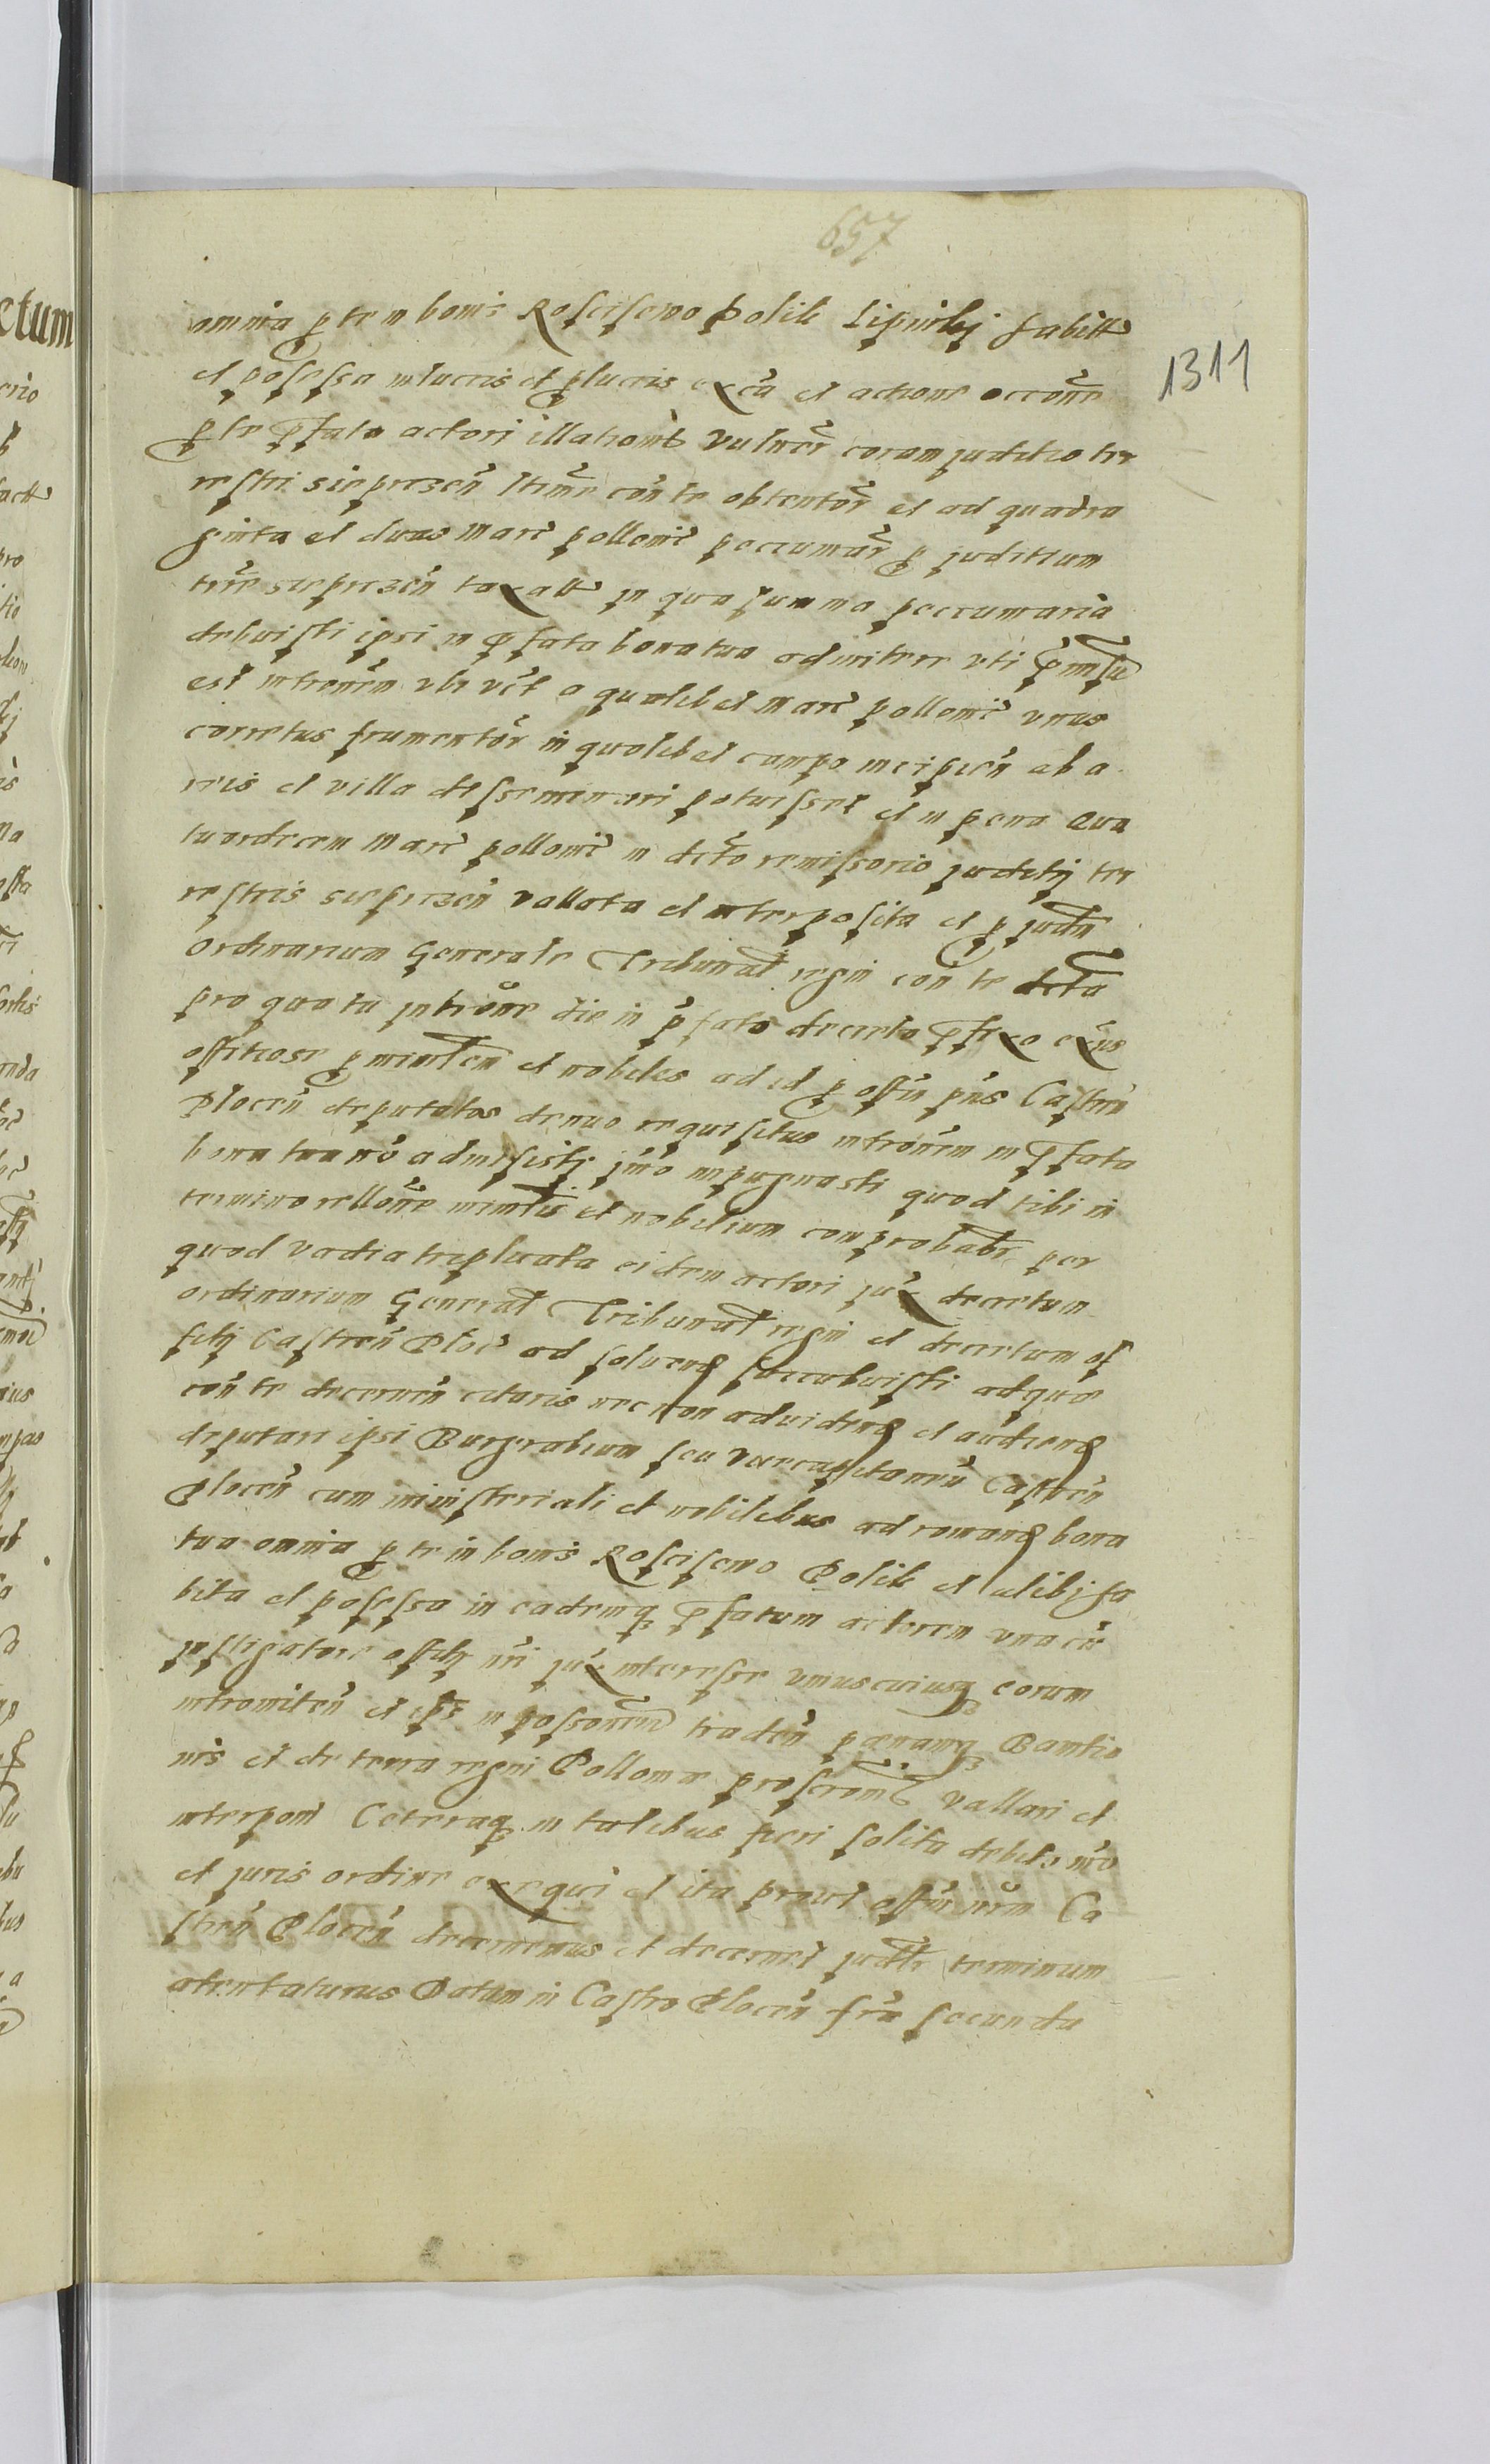 657
1311
omnia p te in bonis Rosciszewo Polik Lipniky habitt
et possessa in lucris et plucris ex ca et actione occone
p te pfato actori illationis vulner coram juditio ter
restri Sieprzcen Itinere con te obtentor et ad quadra
ginta et duas Marc polloni peccuniar p juditium
terre Sieprzcen taxatt in qua summa peccuniaria
debuisti ipsi in pfata bona tua admittere vti pmissu
est intronem vbi vct a qualibet Marc polloni vnus
corretus frumentor in quolibet campo incipien ab a
reis et villa disseminari potuisset et in pena qua
tuordecem Marc polloni in dcto remissorio juditij ter
restris Sieprzcen vallata et interposita et p judm
ordinarium Generale Tribunal regni con te dcta
pro qua tu introne die in pfato decreto pfixo exis
officiose p minlem et nobiles ad id p offm pns Castren
Plocen deputatos denuo requisitus intronem in pfata
bona tua no admisisti imo inpugnasti quod tibi in
termino rellone minlis et nobilium comprobabr per
quod vadia triplicata eidem actori jux decretum
ordinarium General Tribunal regni et decretum of
ficij Castren Ploc ad solvend succubuisti adque
con te decernen citaris nec non ad videnq et audiend
deputari ipsi Burgrabium seu vicecapitaneu Castren
Plocen cum ministeriali et nobilibus ad romand bona
tua omnia p te in bonis Rosciszewo Polik et alibi ha
bita et possessa in eademq pfatum actorem vna cu
Instigatore officij nri jux interesse vniuscuiusq eorum
intromiten et ips in possonem traden pœnamq Banitio
nis et de terra regni Pollonie proscronis vallari et
interponi Ceteraq in talibus fieri solita debite mo
et juris ordine exequi et ita prout offm nrm Ca
stren Plocen decernemus et decernet judltr terminum
atentaturus Datum in Castro Plocen fria secunda